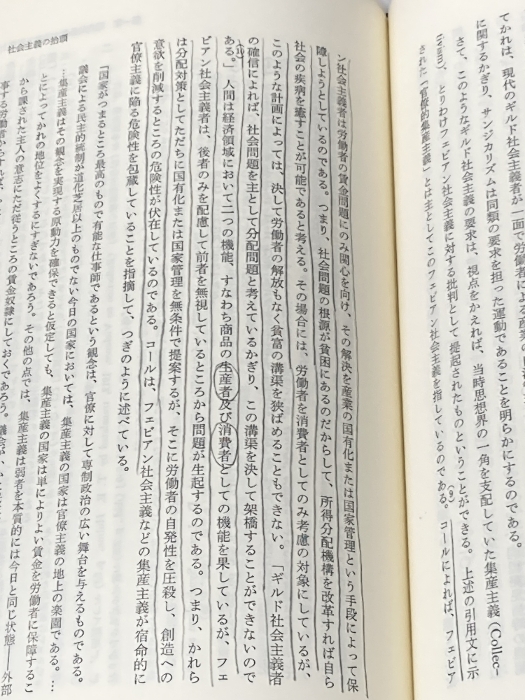 てかれは、現代のギルド社会主義者が一面で労働者による産業の
に関するかぎり、サンジカリズムは同類の要求を担った運動であることを明らかにするのである。
さて、このようなギルド社会主義の要求は、視点をかえれば、当時思想界の一角を支配していた集産主義(Collec-
tivism)、とりわけフェビアン社会主義に対する批判として提起されたものということができる。上述の引用文に示
された「官僚的集産主義」とは主としてこのフェビアン社会主義を指しているのである。(9)コールによれば、フェビア
ン社会主義者は労働者の賃金問題にのみ関心を向け、その解決を産業の国有化または国家管理という手段によって保
障しようとしているのである。つまり、社会問題の根源が貧困にあるのだからして、所得分配機構を改革すれば自ら
社会の疾病を癒すことが可能であると考える。その場合には、労働者を消費者としてのみ考慮の対象にしているが、
このような計画によっては、決して労働者の解放もなく貧富の溝渠を狭ばめることもできない。「ギルド社会主義者
の確信によれば、社会問題を主として分配問題と考えているかぎり、この溝渠を決して架橋することができないので
ある。」人間は経済領域において二つの機能、すなわち商品の生産者及び消費者としての機能を果しているが、フェ
ビアン社会主義者は、後者のみを配慮して前者を無視しているところから問題が生起するのである。つまり、かれら
は分配対策としてただちに国有化または国家管理を無条件で提案するが、そこに労働者の自発性を圧殺し、創造への
意欲を削減するところの危険性が伏在しているのである。コールは、フェビアン社会主義などの集産主義が宿命的に
官僚主義に陥る危険性を包蔵していることを指摘して、つぎのように述べている。
「国家がつまるところ最高のもので有能な仕事師であるという観念は、官僚に対して専制政治の広い舞台を与えるものである。
議会による民主的統制が道化芝居以上のものでない今日の国家においては、集産主義の国家は官僚主義の地上の楽園である。…
…集産主義はその観念を実現する原動力を確保できると仮定しても、集産主義の国家は単によりよい賃金を労働者に保障するこ
とによってかれの地位をよくするにすぎないであろう。その他の点では、集産主義は弱者を本質的には今日と同じ状態――外部
から課された主人の意志にただ従うところの賃金奴隷にしておくであろう。
事する労働者
社会主義の抬頭